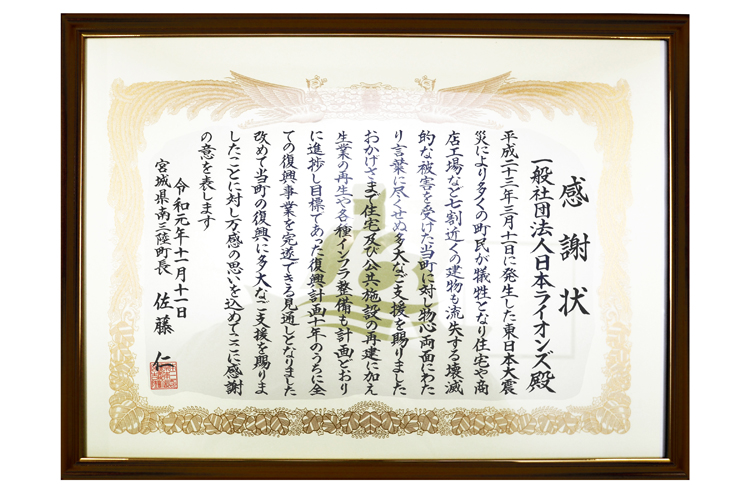 感謝状
一般社団法人日本ライオンズ殿
平成二十三年三月十一日に発生した東日本大震
災により多くの町民が犠牲となり住宅や商
店工場など七割近くの建物も流失する壊滅
的な被害を受けた当町に対し物心両面にわた
り言葉に尽くせぬ多大なご支援を賜りました
おかげさまで住宅及び公共施設の再建に加え
生業の再生や各種インフラ整備も計画どおり
に進捗し目標であった復興計画十年のうちに全
ての復興事業を完遂できる見通しとなりました
改めて当町の復興に多大なご支援を賜りま
したことに対し万感の思いを込めてここに感謝
の意を表します
令和元年十一月十一日
宮城県南三陸町長 佐藤 仁